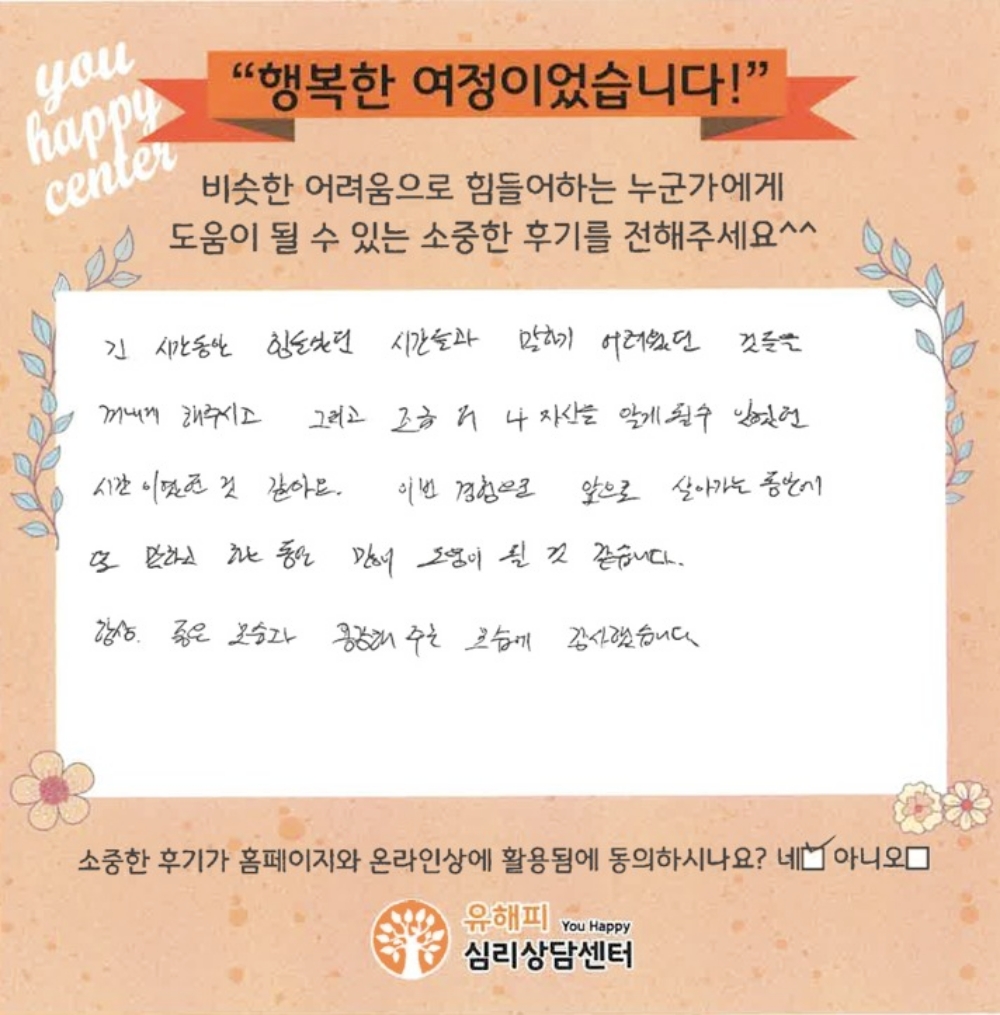 you
happy
center
“행복한 여정이었습니다!”
비슷한 어려움으로 힘들어하는 누군가에게
도움이 될 수 있는 소중한 후기를 전해주세요^^
긴 시간동안 힘들었던 시간들과 말하기 어려웠던 것들을
꺼내게 해주시고 그리고 조금 더 나 자신을 알게 될수 있었던
시간 이였던 것 같아요. 이번 경험으로 앞으로 살아가는 동안에
또 하는 동안 많이 도움이 될 것 같습니다.
항상. 좋은 모습과 공감해 주는 모습에 감사했습니다
소중한 후기가 홈페이지와 온라인상에 활용됨에 동의하시나요? 네☑ 아니오□
유해피 You Happy
심리상담센터